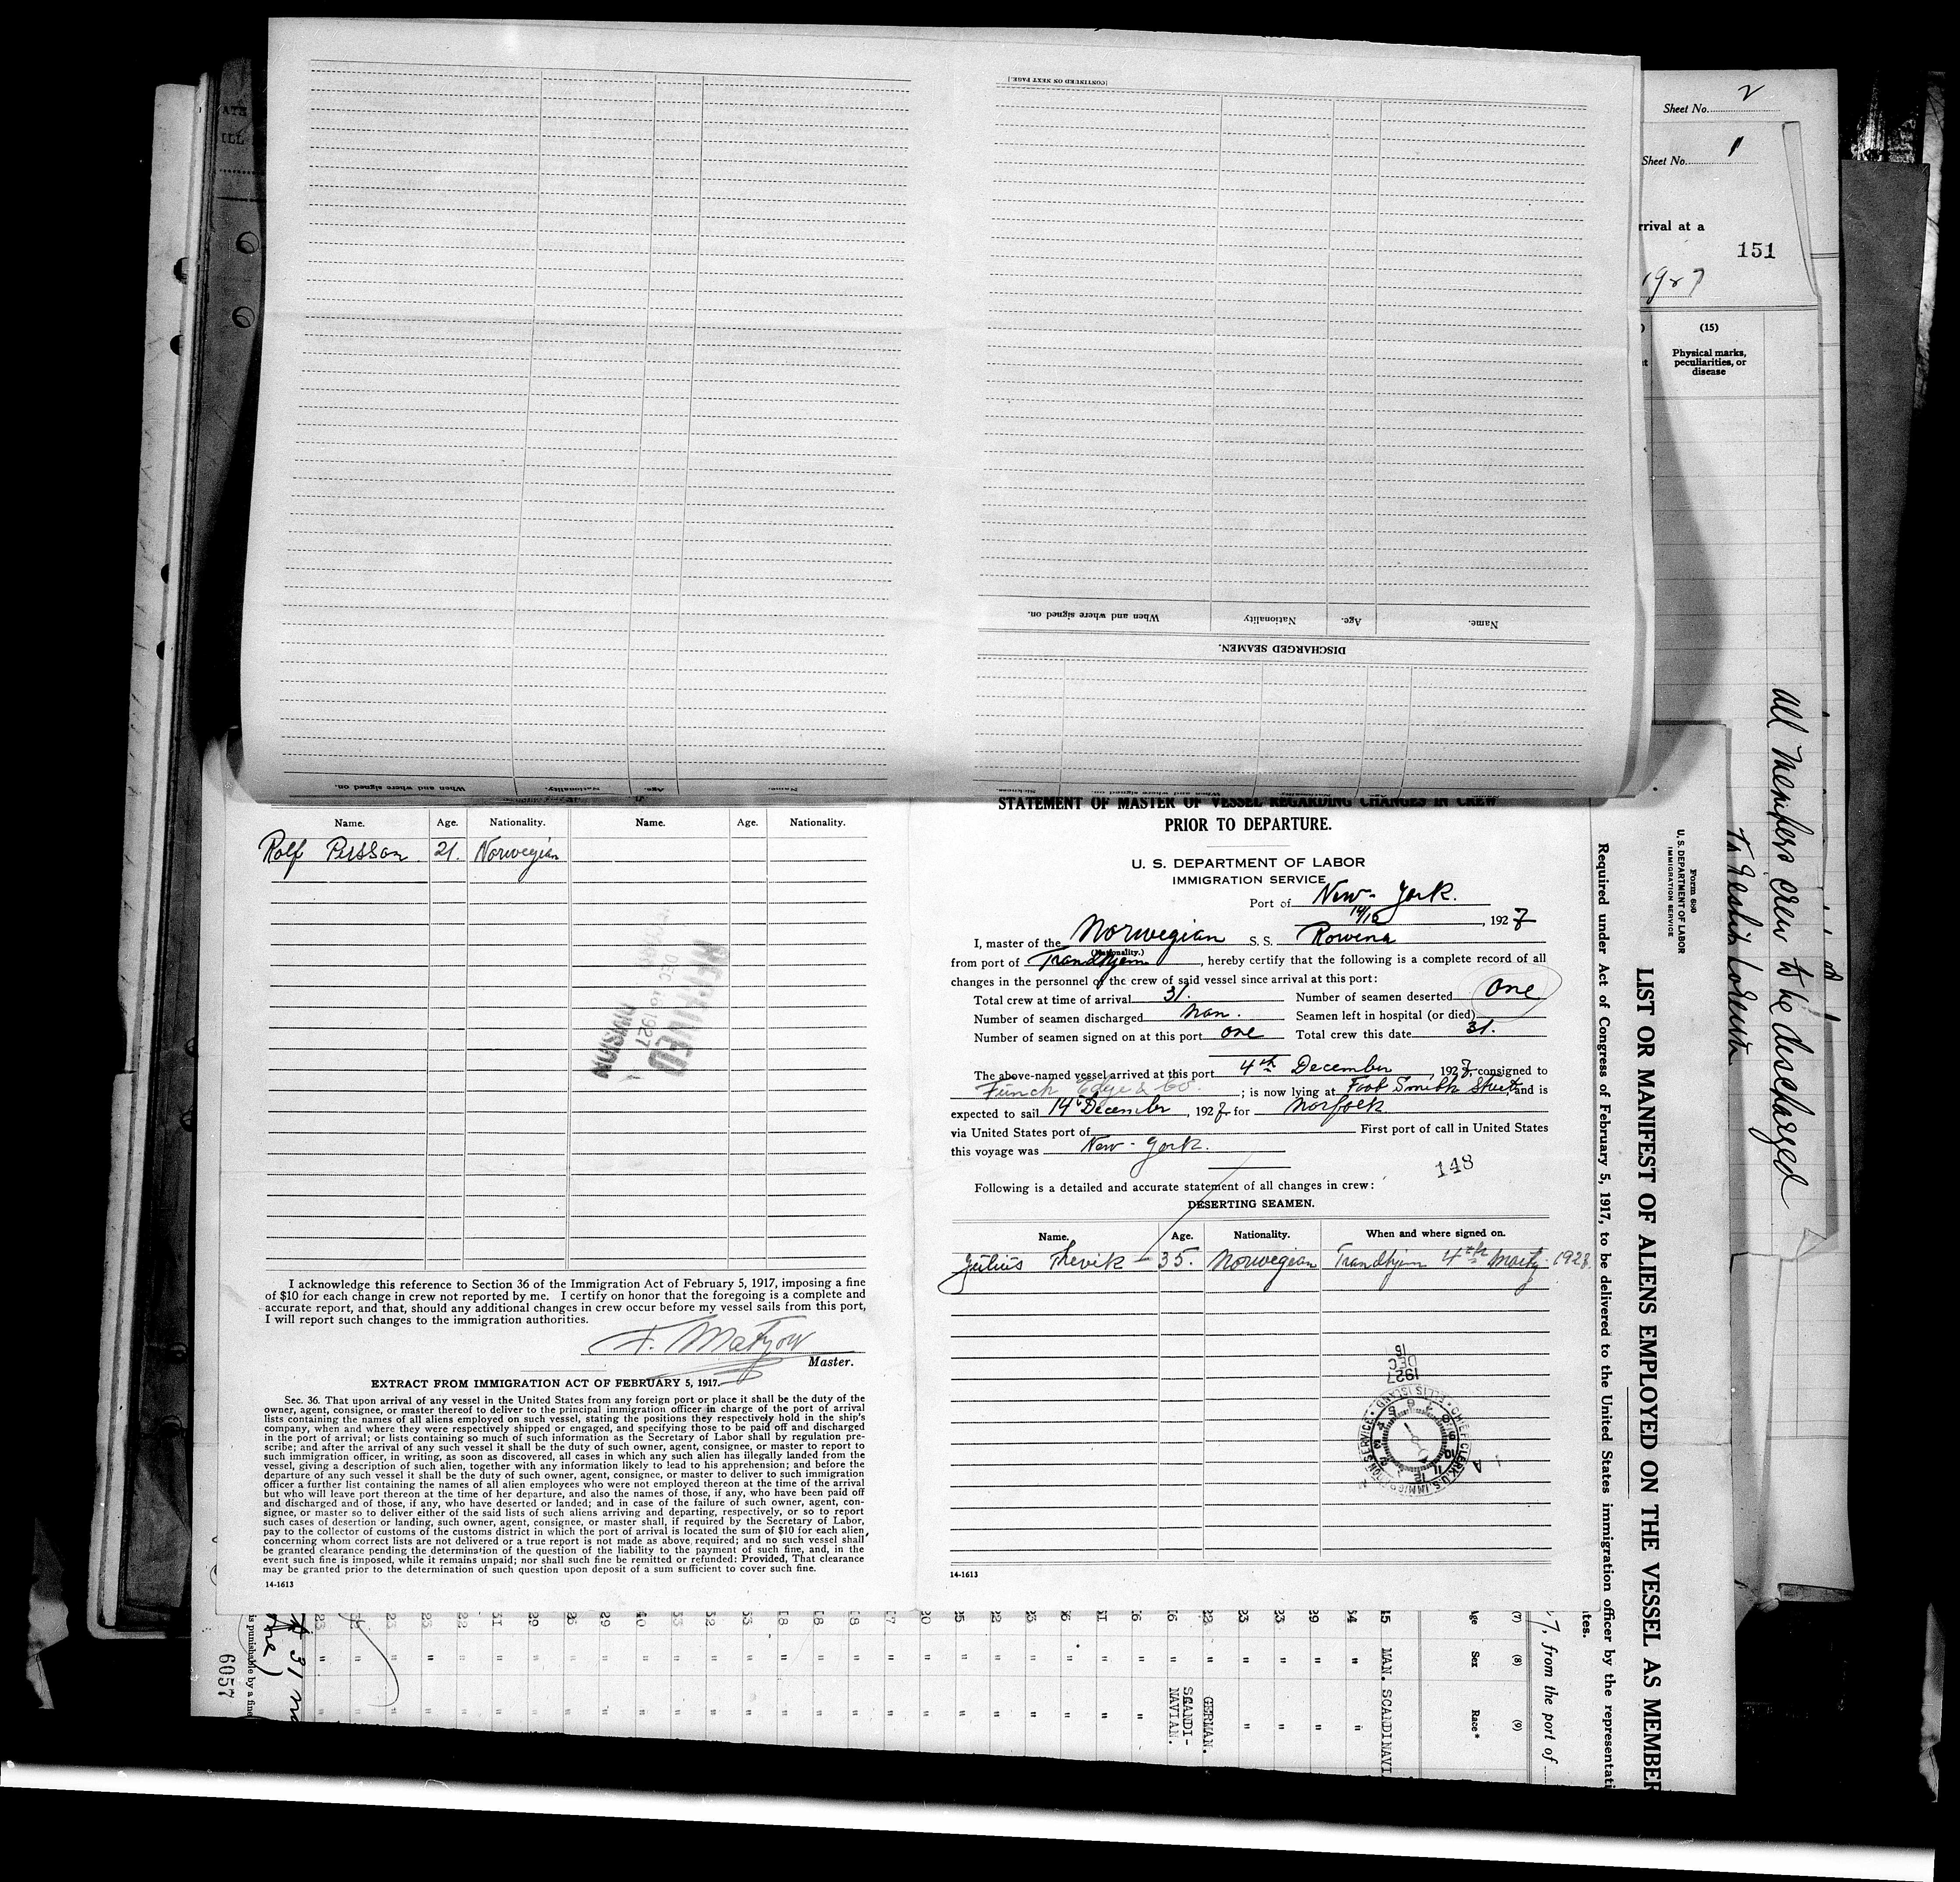 (CONTINUED ON NEXT PAGE.)
Name. Age. Nationality When and where signed on.
DISCHARGED SEAMEN.
Name. Age. Nationality. When and where signed on.
Sheet No. 2
Sheet No. 1
rrival at a
151
1927
(15)
Physical marks, peculiarities, or disease
all members crew to be discharged
Name. Age. Nationality. Name. Age. Nationality.
Rolf 21. Norwegian
DEC 1927
DIVISION
I acknowledge this reference to Section 36 of the Immigration Act of February 5, 1917, imposing a fine
of $10 for each change in crew not reported by me. I certify on honor that the foregoing is a complete and
accurate report, and that, should any additional changes in crew occur before my vessel sails from this port,
I will report such changes to the immigration authorities.
Master.
EXTRACT FROM IMMIGRATION ACT OF FEBRUARY 5, 1917.
Sec. 36. That upon arrival of any vessel in the United States from any foreign port or place it shall be the duty of the
owner, agent, consignee, or master thereof to deliver to the principal immigration officer in charge of the port of arrival
lists containing the names of all aliens employed on such vessel, stating the positions they respectively hold in the ship's
company, when and where they were respectively shipped or engaged, and specifying those to be paid off and discharged
in the port of arrival; or lists containing so much of such information as the Secretary of Labor shall by regulation pre-
scribe; and after the arrival of any such vessel it shall be the duty of such owner, agent, consignee, or master to report to
such immigration officer, in writing, as soon as discovered, all cases in which any such alien has illegally landed from the
vessel, giving a description of such alien, together with any information likely to lead to his apprehension; and before the
departure of any such vessel it shall be the duty of such owner, agent, consignee, or master to deliver to such immigration
officer a further list containing the names of all alien employees who were not employed thereon at the time of the arrival
but who will leave port thereon at the time of her departure, and also the names of those, if any, who have been paid off
and discharged and of those, if any, who have deserted or landed; and in case of the failure of such owner, agent, con-
signee, or master so to deliver either of the said lists of such aliens arriving and departing, respectively, or so to report
such cases of desertion or landing, such owner, agent, consignee, or master shall, if required by the Secretary of Labor,
pay to the collector of customs of the customs district in which the port of arrival is located the sum of $10 for each alien,
concerning whom correct lists are not delivered or a true report is not made as above required; and no such vessel shall
be granted clearance pending the determination of the question of the liability to the payment of such fine, and, in the
event such fine is imposed, while it remains unpaid; nor shall such fine be remitted or refunded: Provided, That clearance
may be granted prior to the determination of such question upon deposit of a sum sufficient to cover such fine.
14-1613
STATEMENT OF MASTER OF VESSEL REGARDING CHANGES IN CREW
PRIOR TO DEPARTURE.
U. S. DEPARTMENT OF LABOR
IMMIGRATION SERVICE
Port of New-York.
14/12, 1927
I, master of the Norwegian S. S. Rowena
(Nationality.)
from port of Trondhjem, hereby certify that the following is a complete record of all
changes in the personnel of the crew of said vessel since arrival at this port:
Total crew at time of arrival 31. Number of seamen deserted one
Number of seamen discharged non. Seamen left in hospital (or died)
Number of seamen signed on at this port one Total crew this date 31.
The above-named vessel arrived at this port 4th December, 1927, consigned to
Funch Edye & Co.; is now lying at Foot Smith Street, and is
expected to sail 14 December, 1927 for Norfolk
via United States port of First port of call in United States
this voyage was New-York.
148
Following is a detailed and accurate statement of all changes in crew:
DESERTING SEAMEN.
Name. Age. Nationality. When and where signed on.
Julius 35. Norwegian Trondhjem 4th
16 DEC 1927
CHIEF CLERK U.S. IMMIGRATION SERVICE ELLIS ISLAND
14-1613
Form 680
U. S. DEPARTMENT OF LABOR
IMMIGRATION SERVICE
LIST OR MANIFEST OF ALIENS EMPLOYED ON THE VESSEL AS MEMBER
Required under Act of Congress of February 5, 1917, to be delivered to the United States immigration officer by the representati
tes.
7, from the port of
(7) (8) (9)
Age Sex Race*
MAN. SCANDINAVI
GERMAN.
SCANDI-
NAVIAN.
is punishable by a fine
6057